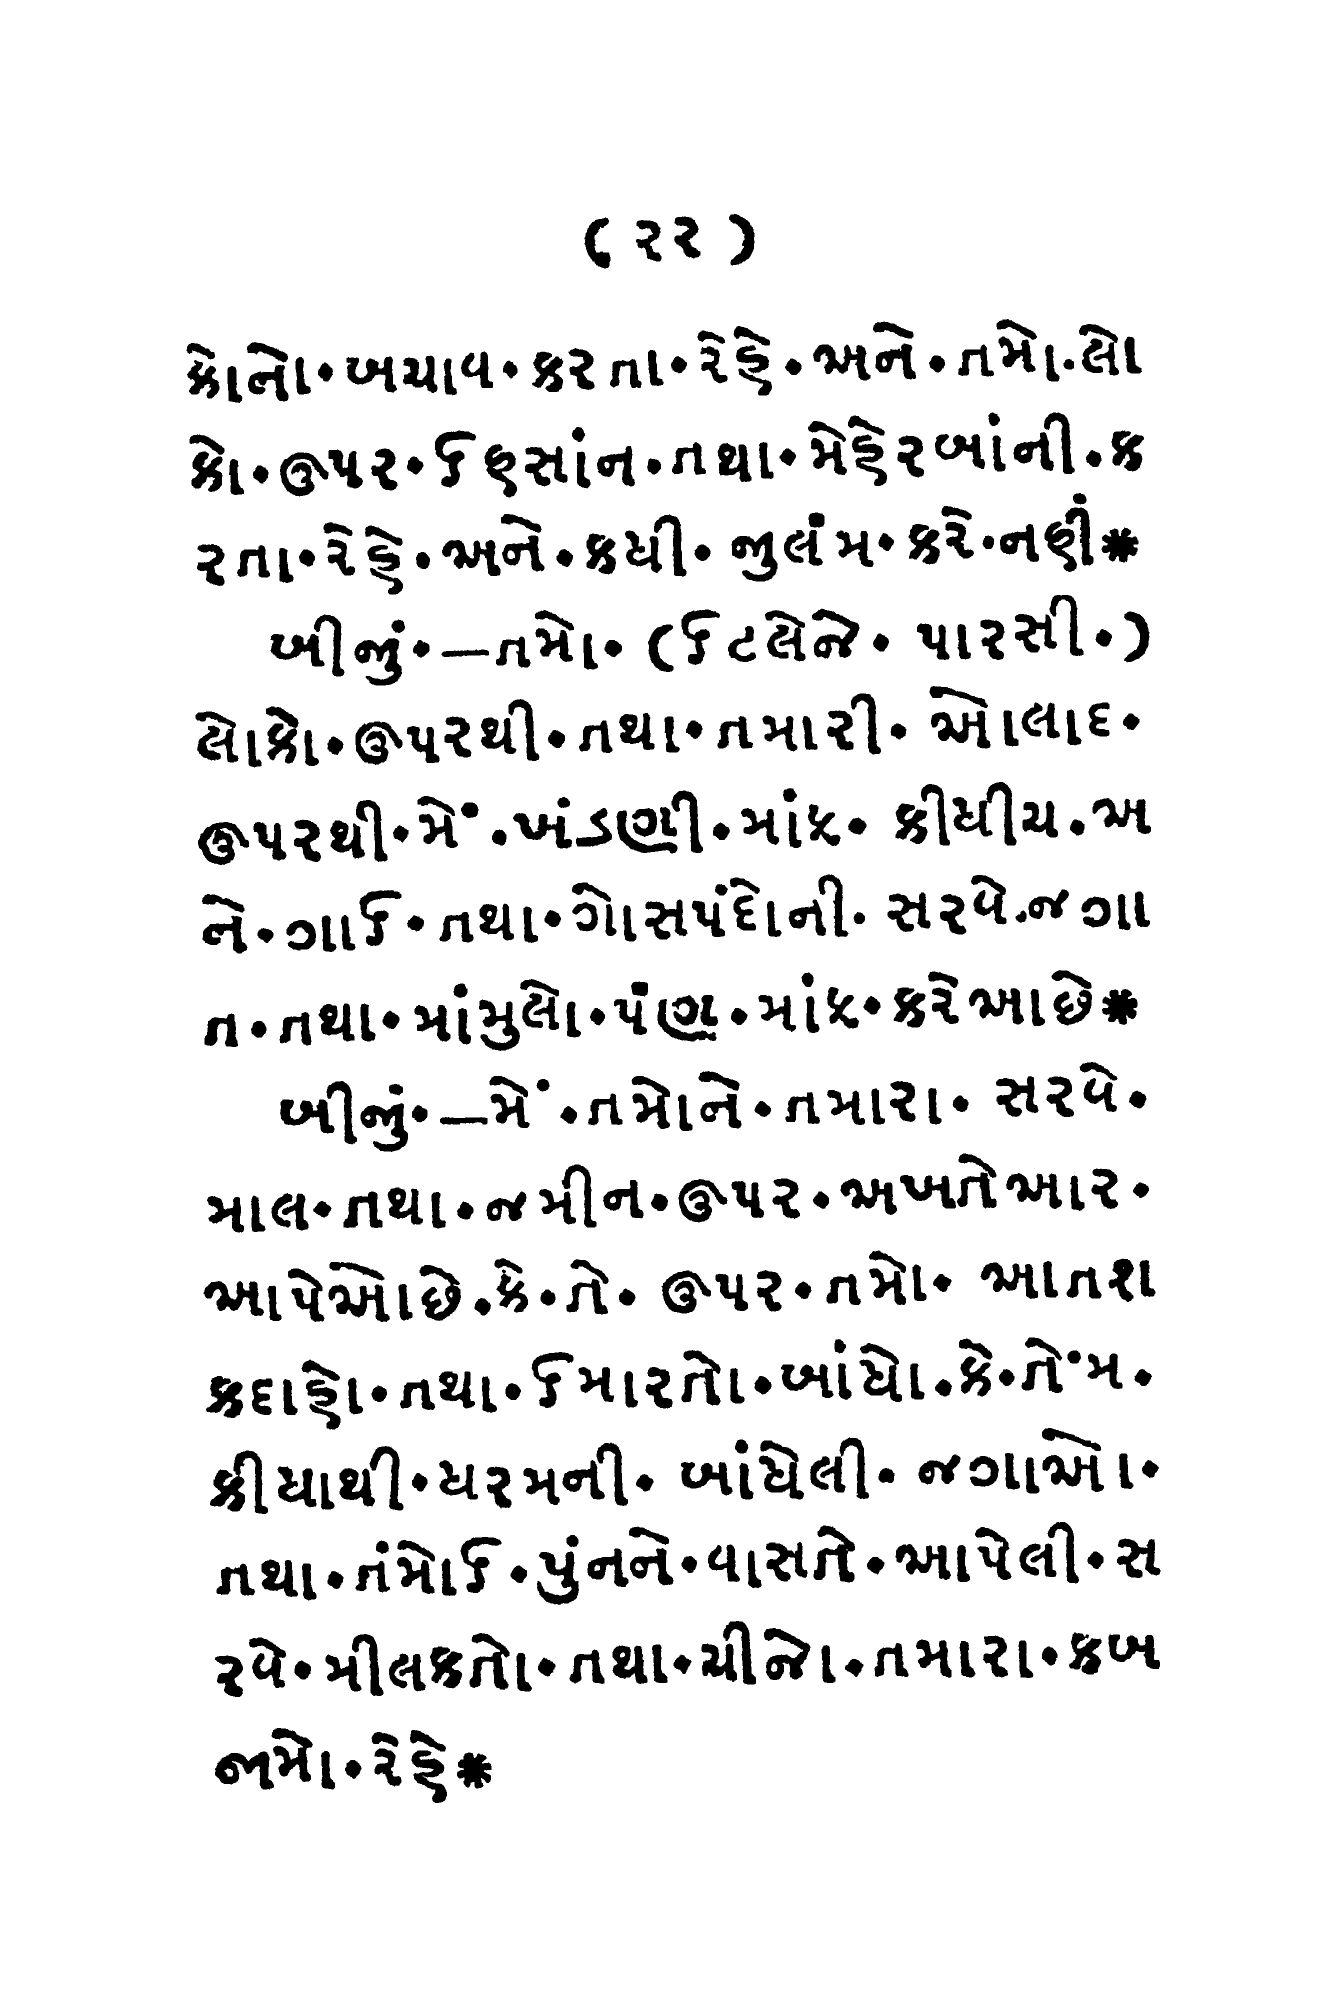 ( ૨૨ )
કોનો· બચાવ· કરતા· રેહે· અને· તમો· લો
કો· ઊપર· ઈહસાંન· તથા· મેહેરબાંની· ક
રતા· રેહે· અને· કધી· જુલંમ· કરે· નહીં*
બીજું·—તમો· (ઈટલેજે· પારસી·)
લોકો· ઊપરથી· તથા· તમારી· ઓલાદ·
ઊપરથી· મેં· ખંડણી· માંફ· કીધીચ· અ
ને· ગાઈ· તથા· ગોસપંદોની· સરવે· જગા
ત· તથા· માંમુલો· પંણ· માંફ· કરેઆછે*
બીજું·—મેં· તમોને· તમારા· સરવે·
માલ· તથા· જમીન· ઊપર· અખતેઆર·
આપેઓછે· કે· તે· ઊપર· તમો· આતશ
કદાહો· તથા· ઈમારતો· બાંધો· કે· તેંમ·
કીધાથી· ધરમની· બાંધેલી· જગાઓ·
તથા· તંમોઈ· પુંનને· વાસતે· આપેલી· સ
રવે· મીલકતો· તથા· ચીજો· તમારા· કબ
જામો· રેહે*